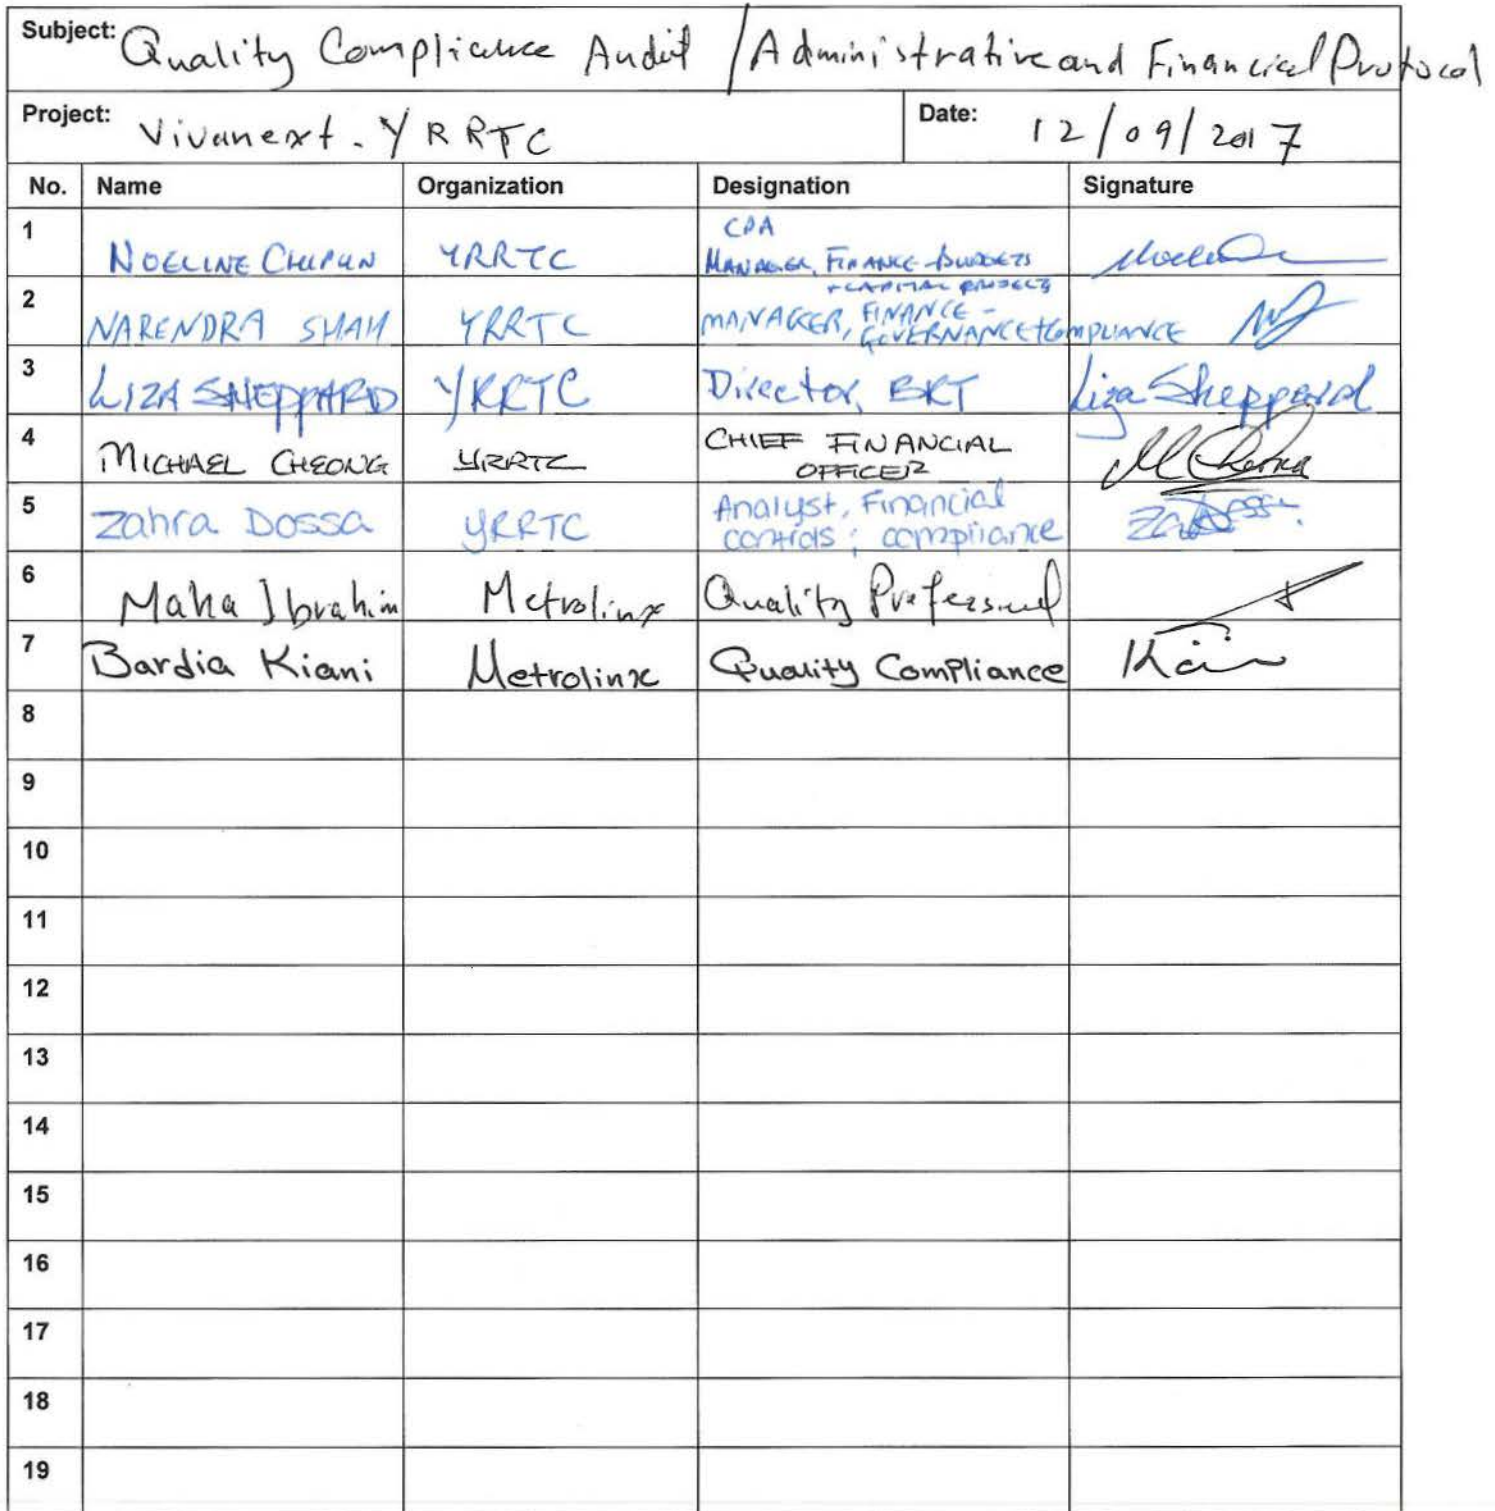 Subject: Quality Compliance Audit / Administrative and Financial Protocol
Project: Vivanext. YRRTC Date: 12/09/2017
No. Name Organization Designation Signature
1 NOELINE YRRTC CPA MANAGER, FINANCE-BUDGETS + CAPITAL PROJECTS
2 NARENDRA SHAH YRRTC MANAGER, FINANCE - GOVERNANCE + COMPLIANCE
3 LIZA SHEPPARD YRRTC Director, BRT Liza Sheppard
4 MICHAEL CHEONG YRRTC CHIEF FINANCIAL OFFICER
5 Zahra Dossa YRRTC Analyst, Financial controls ; compliance
6 Maha Ibrahim Metrolinx Quality Professional
7 Bardia Kiani Metrolinx Quality Compliance
8
9
10
11
12
13
14
15
16
17
18
19